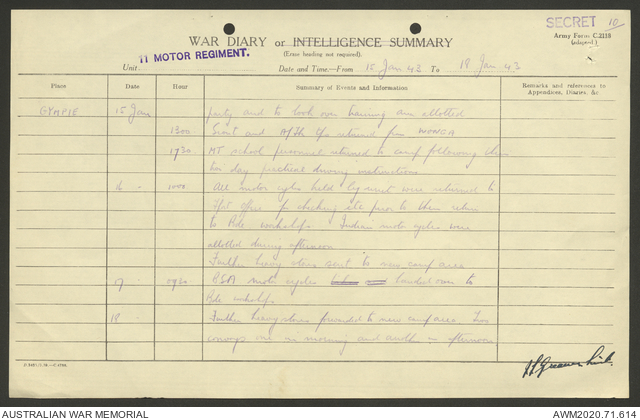 SECRET 10
WAR DIARY or INTELLIGENCE SUMMARY
Army Form C.2118
(adapted.)
(Erase heading not required).
Unit 11 MOTOR REGIMENT.
Date and Time:—From 15 Jan 43 To 18 Jan 43
Place Date Hour Summary of Events and Information Remarks and references to
Appendices, Diaries, &c
GYMPIE 15 Jan party and to look over training area allotted
1300 Scout and tps returned from
1730 MT school personnel returned to camp following their
two day practical driving instructions
16 - 1000 All motor cycles held by unit were returned to
for checking etc prior to their return
to Bde workshops Indian moto cycles were
allotted during afternoon
Further heavy stores sent to new camp area
17 - 0930 BSA moto cycles handed over to
Bde workshops
18 - Further heavy stores forwarded to new camp area Two
convoys one in morning and another in afternoon
AUSTRALIAN WAR MEMORIAL
AWM2020.71.614